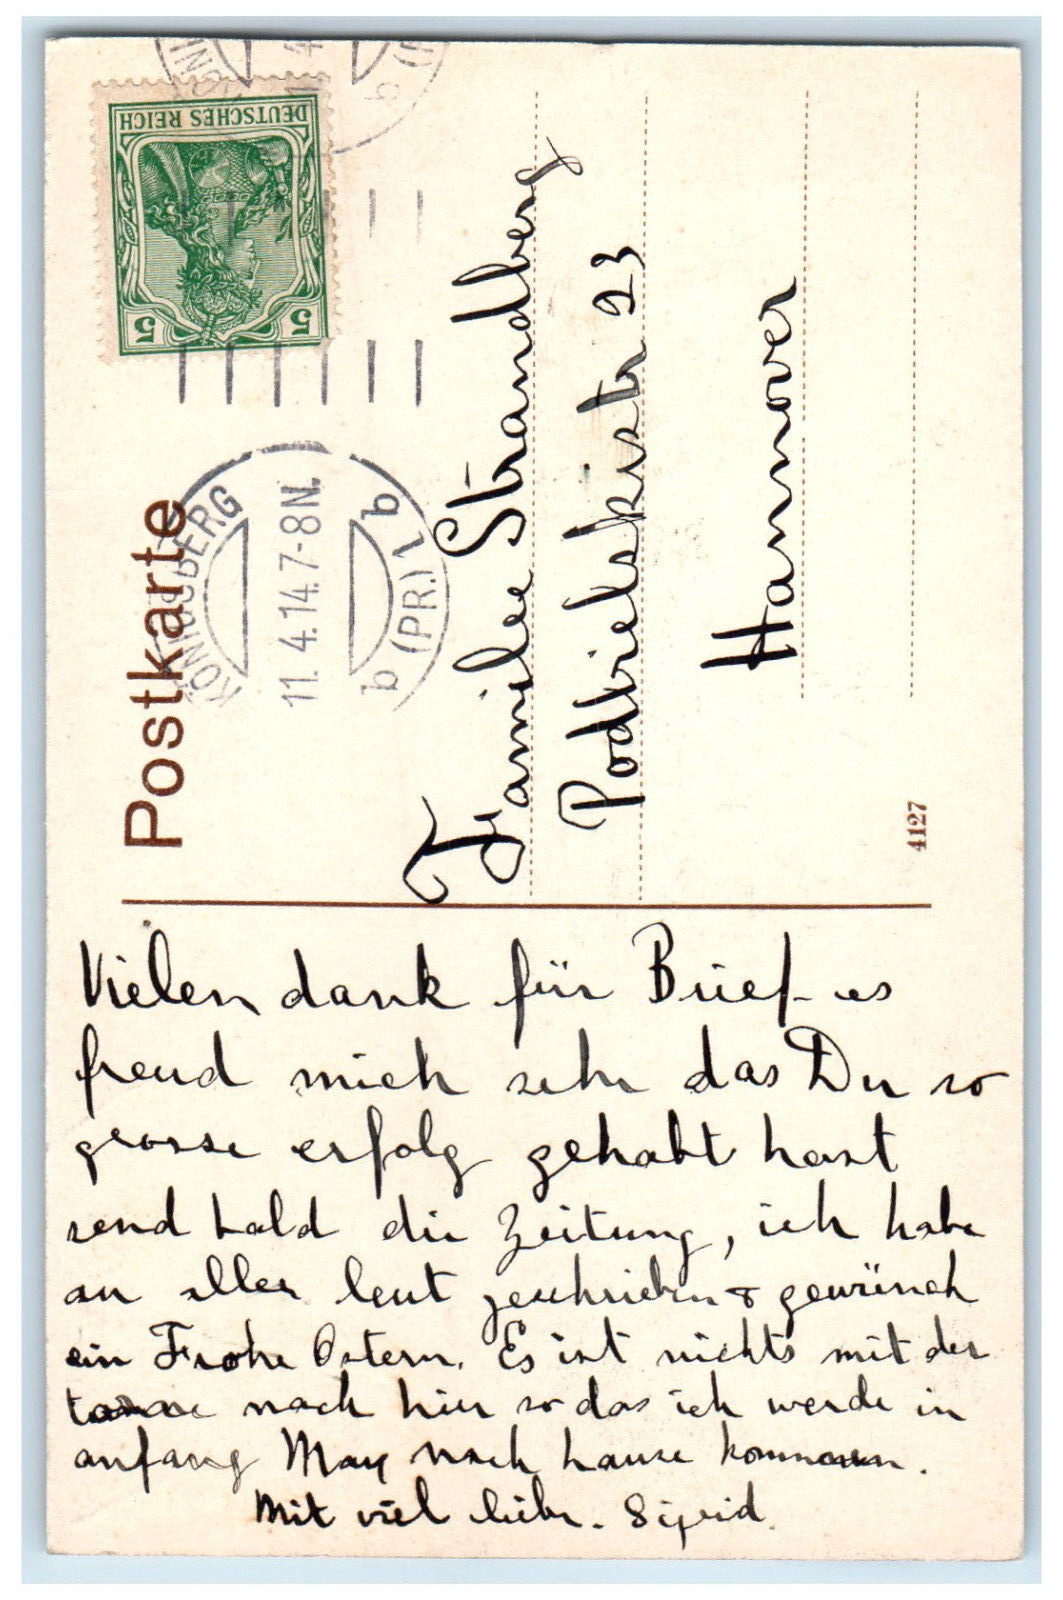 Postkarte
DEUTSCHES REICH
5 5
KÖNIGSBERG
11. 4. 14. 7-8 N.
b (PR.) 1 b
Familee Strandberg
Podbielskistr 23
Hannover
4127
Vielen dank für Brief es
freud mich sehr das Du so
grosse erfolg gehabt hast
send bald die Zeitung, ich habe
an aller leut geschrieben & gewünch
ein Frohe Ostern. Es ist nichts mit der
nach hier so das ich werde in
anfang May nach hause kommen.
Mit viel liebe. Sigrid